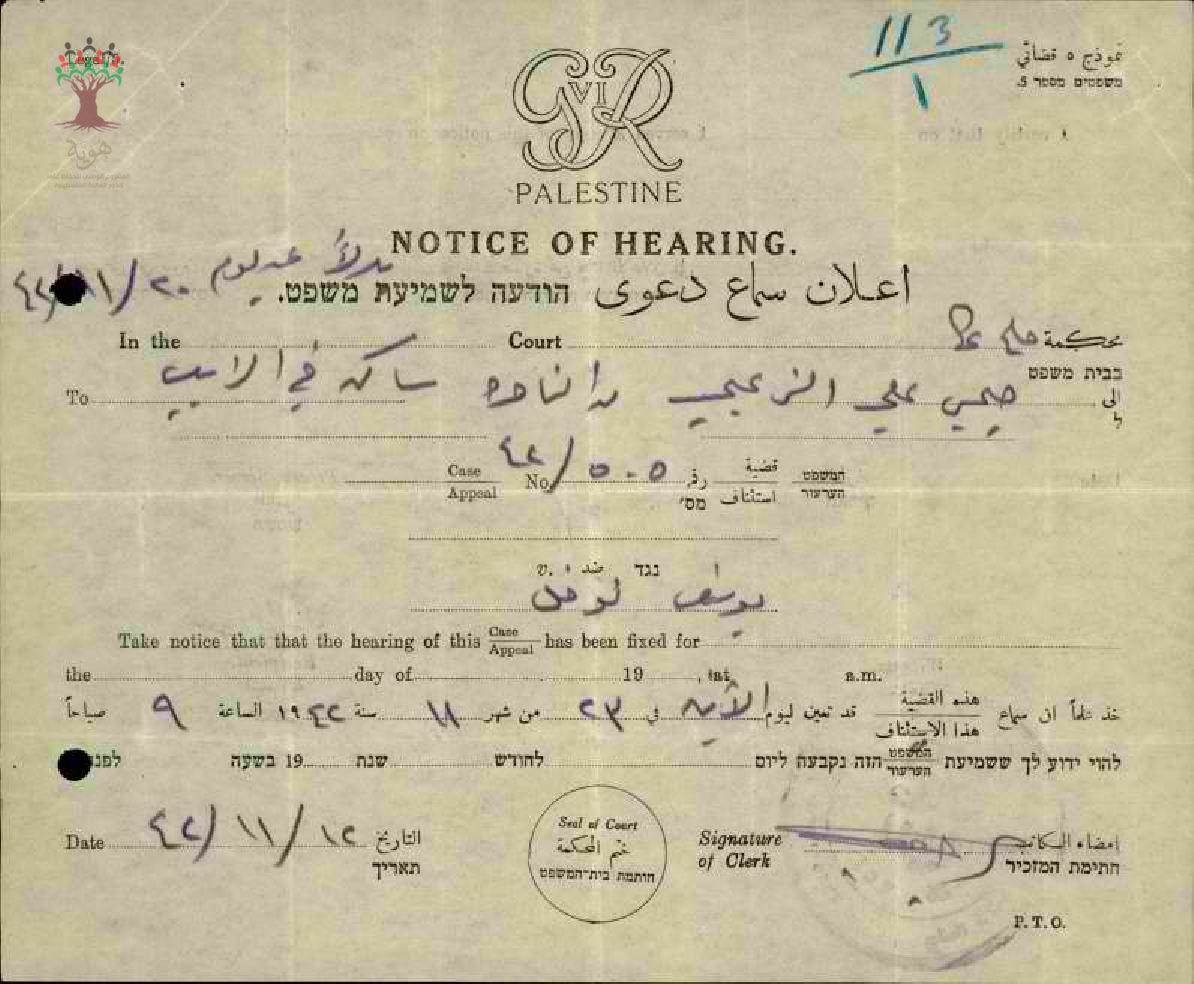 Legal 5.
١١٣
١
نموذج ٥ قضائي
משפטים מספר 5.
هوية
GVIR
PALESTINE
NOTICE OF HEARING.
بدلاً عن يوم ٢٠/١١/٤٢
اعلان سماع دعوى הודעה לשמיעת משפט.
In the Court محكمة صلح
בבית משפט
To الى علي ساكن في
ל
Case
Appeal
No. ٥٠٥/٤٢ رقم
מס'
قضية
استئناف
המשפט
הערעור
v. ضد נגד
يوسف
Take notice that that the hearing of this Case
Appeal has been fixed for
the day of 19 , at a.m.
خذ علماً ان سماع هذه القضية
هذا الاستئناف قد تعين ليوم الاثنين في ٢٣ من شهر ١١ سنة ١٩٤٢ الساعة ٩ صباحاً
להוי ידוע לך ששמיעת המשפט
הערעור הזה נקבעה ליום לחודש שנת 19 בשעה לפנה
Date ١٢/١١/٤٢ التاريخ
תאריך
Seal of Court
ختم المحكمة
חותמת בית-המשפט
Signature
of Clerk
امضاء الكاتب
חתימת המזכיר
P.T.O.